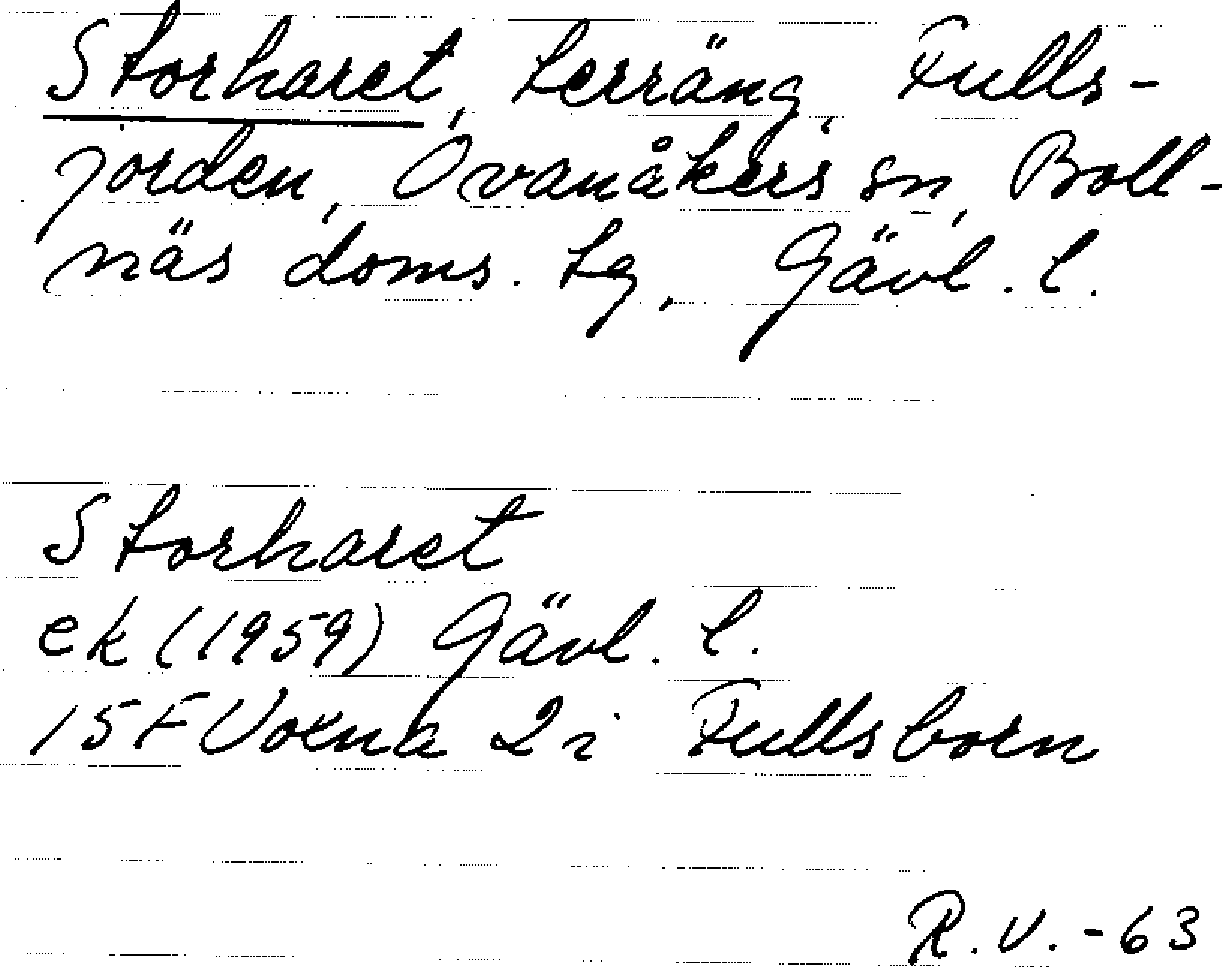 Storharet, terräng, Fulls-
jorden, Ovanåkers sn, Boll-
näs doms. tg, Gävl. l.
Storharet
ek (1959) Gävl. l.
15F Voxna 2i Fullsborn
R.V.-63